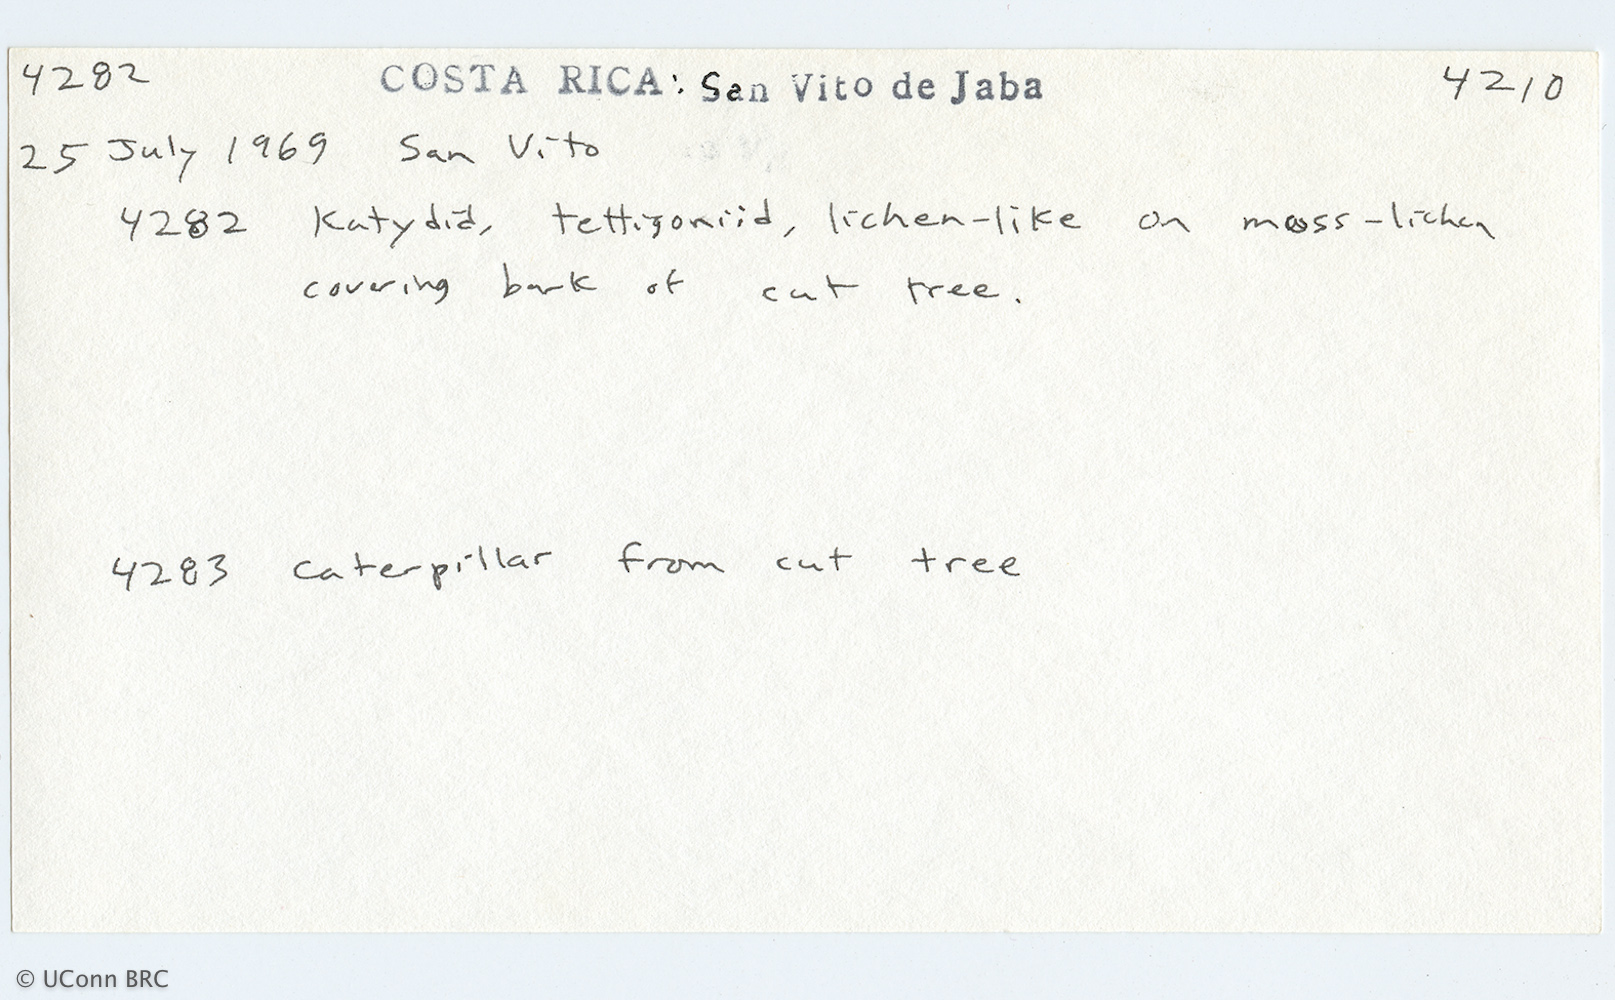 4282 COSTA RICA: San Vito de Jaba 4210
25 July 1969 San Vito
4282 Katydid, tettigoniid, lichen-like on moss-lichen
covering bark of cut tree.
4283 caterpillar from cut tree
© UConn BRC